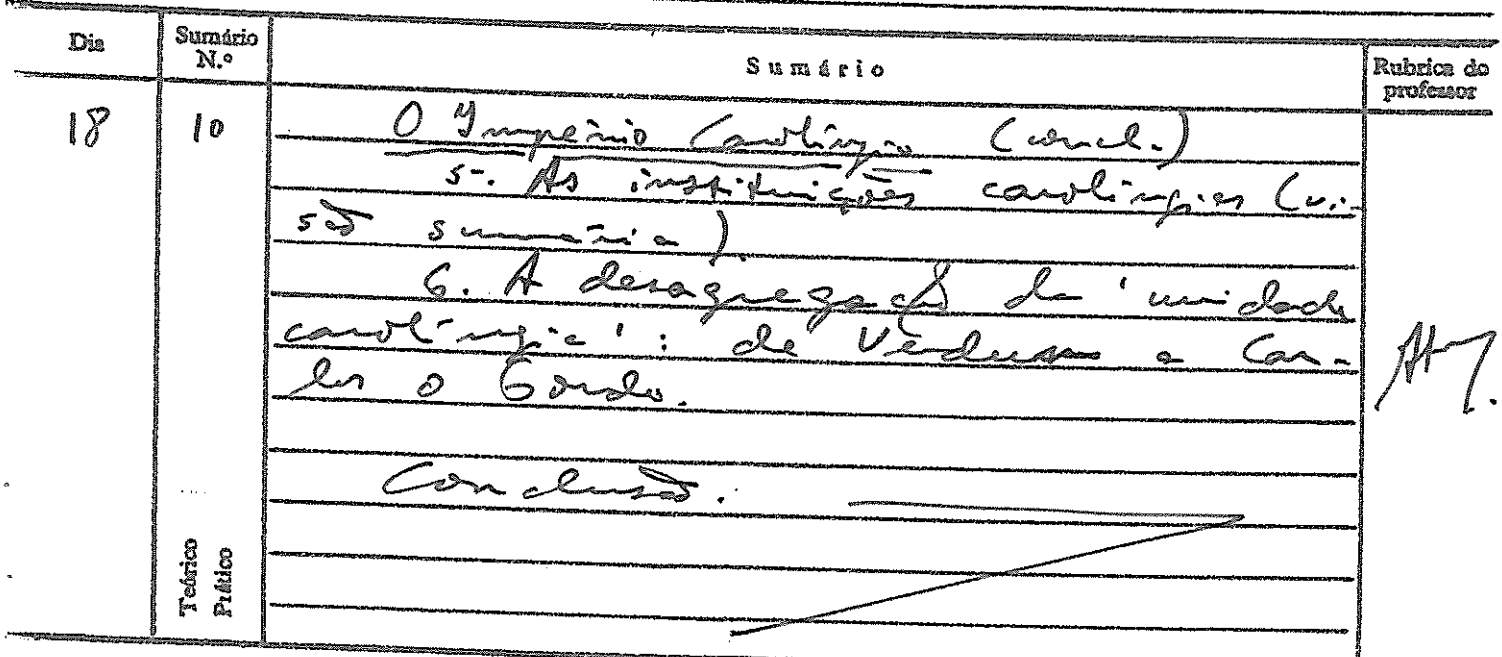 Dia
Sumário N.º
Sumário
Rubrica do professor
18
10
O Império Carolíngio (concl.)
5. As instituições carolíngias (vi-
são sumária).
6. A desagregação da 'unidade
carolíngia': de Verdun a Car-
los o Gordo.
Conclusão.
Teórico
Prático